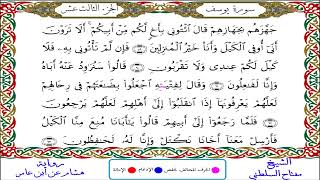 سورة يوسف الجزء الثالث عشر
جَهَّزَهُم بِجَهَازِهِمْ قَالَ ٱئْتُونِى بِأَخٍ لَّكُم مِّنْ أَبِيكُمْ أَلَا تَرَوْنَ
أَنِّى أُوفِى ٱلْكَيْلَ وَأَنَا۠ خَيْرُ ٱلْمُنزِلِينَ فَإِن لَّمْ تَأْتُونِى بِهِۦ فَلَا
كَيْلَ لَكُمْ عِندِى وَلَا تَقْرَبُونِ قَالُوا۟ سَنُرَٰوِدُ عَنْهُ أَبَاهُ
وَإِنَّا لَفَٰعِلُونَ وَقَالَ لِفِتْيَتِهِ ٱجْعَلُوا۟ بِضَٰعَتَهُمْ فِى رِحَالِهِمْ
لَعَلَّهُمْ يَعْرِفُونَهَا إِذَا ٱنقَلَبُوٓا۟ إِلَىٰٓ أَهْلِهِمْ لَعَلَّهُمْ يَرْجِعُونَ
فَلَمَّا رَجَعُوٓا۟ إِلَىٰٓ أَبِيهِمْ قَالُوا۟ يَٰٓأَبَانَا مُنِعَ مِنَّا ٱلْكَيْلُ
فَأَرْسِلْ مَعَنَآ أَخَانَا نَكْتَلْ وَإِنَّا لَهُۥ لَحَٰفِظُونَ
الشيخ
مفتاح السلطني
الإدغام
الإمالة
رواية
هشام عن ابن عامر